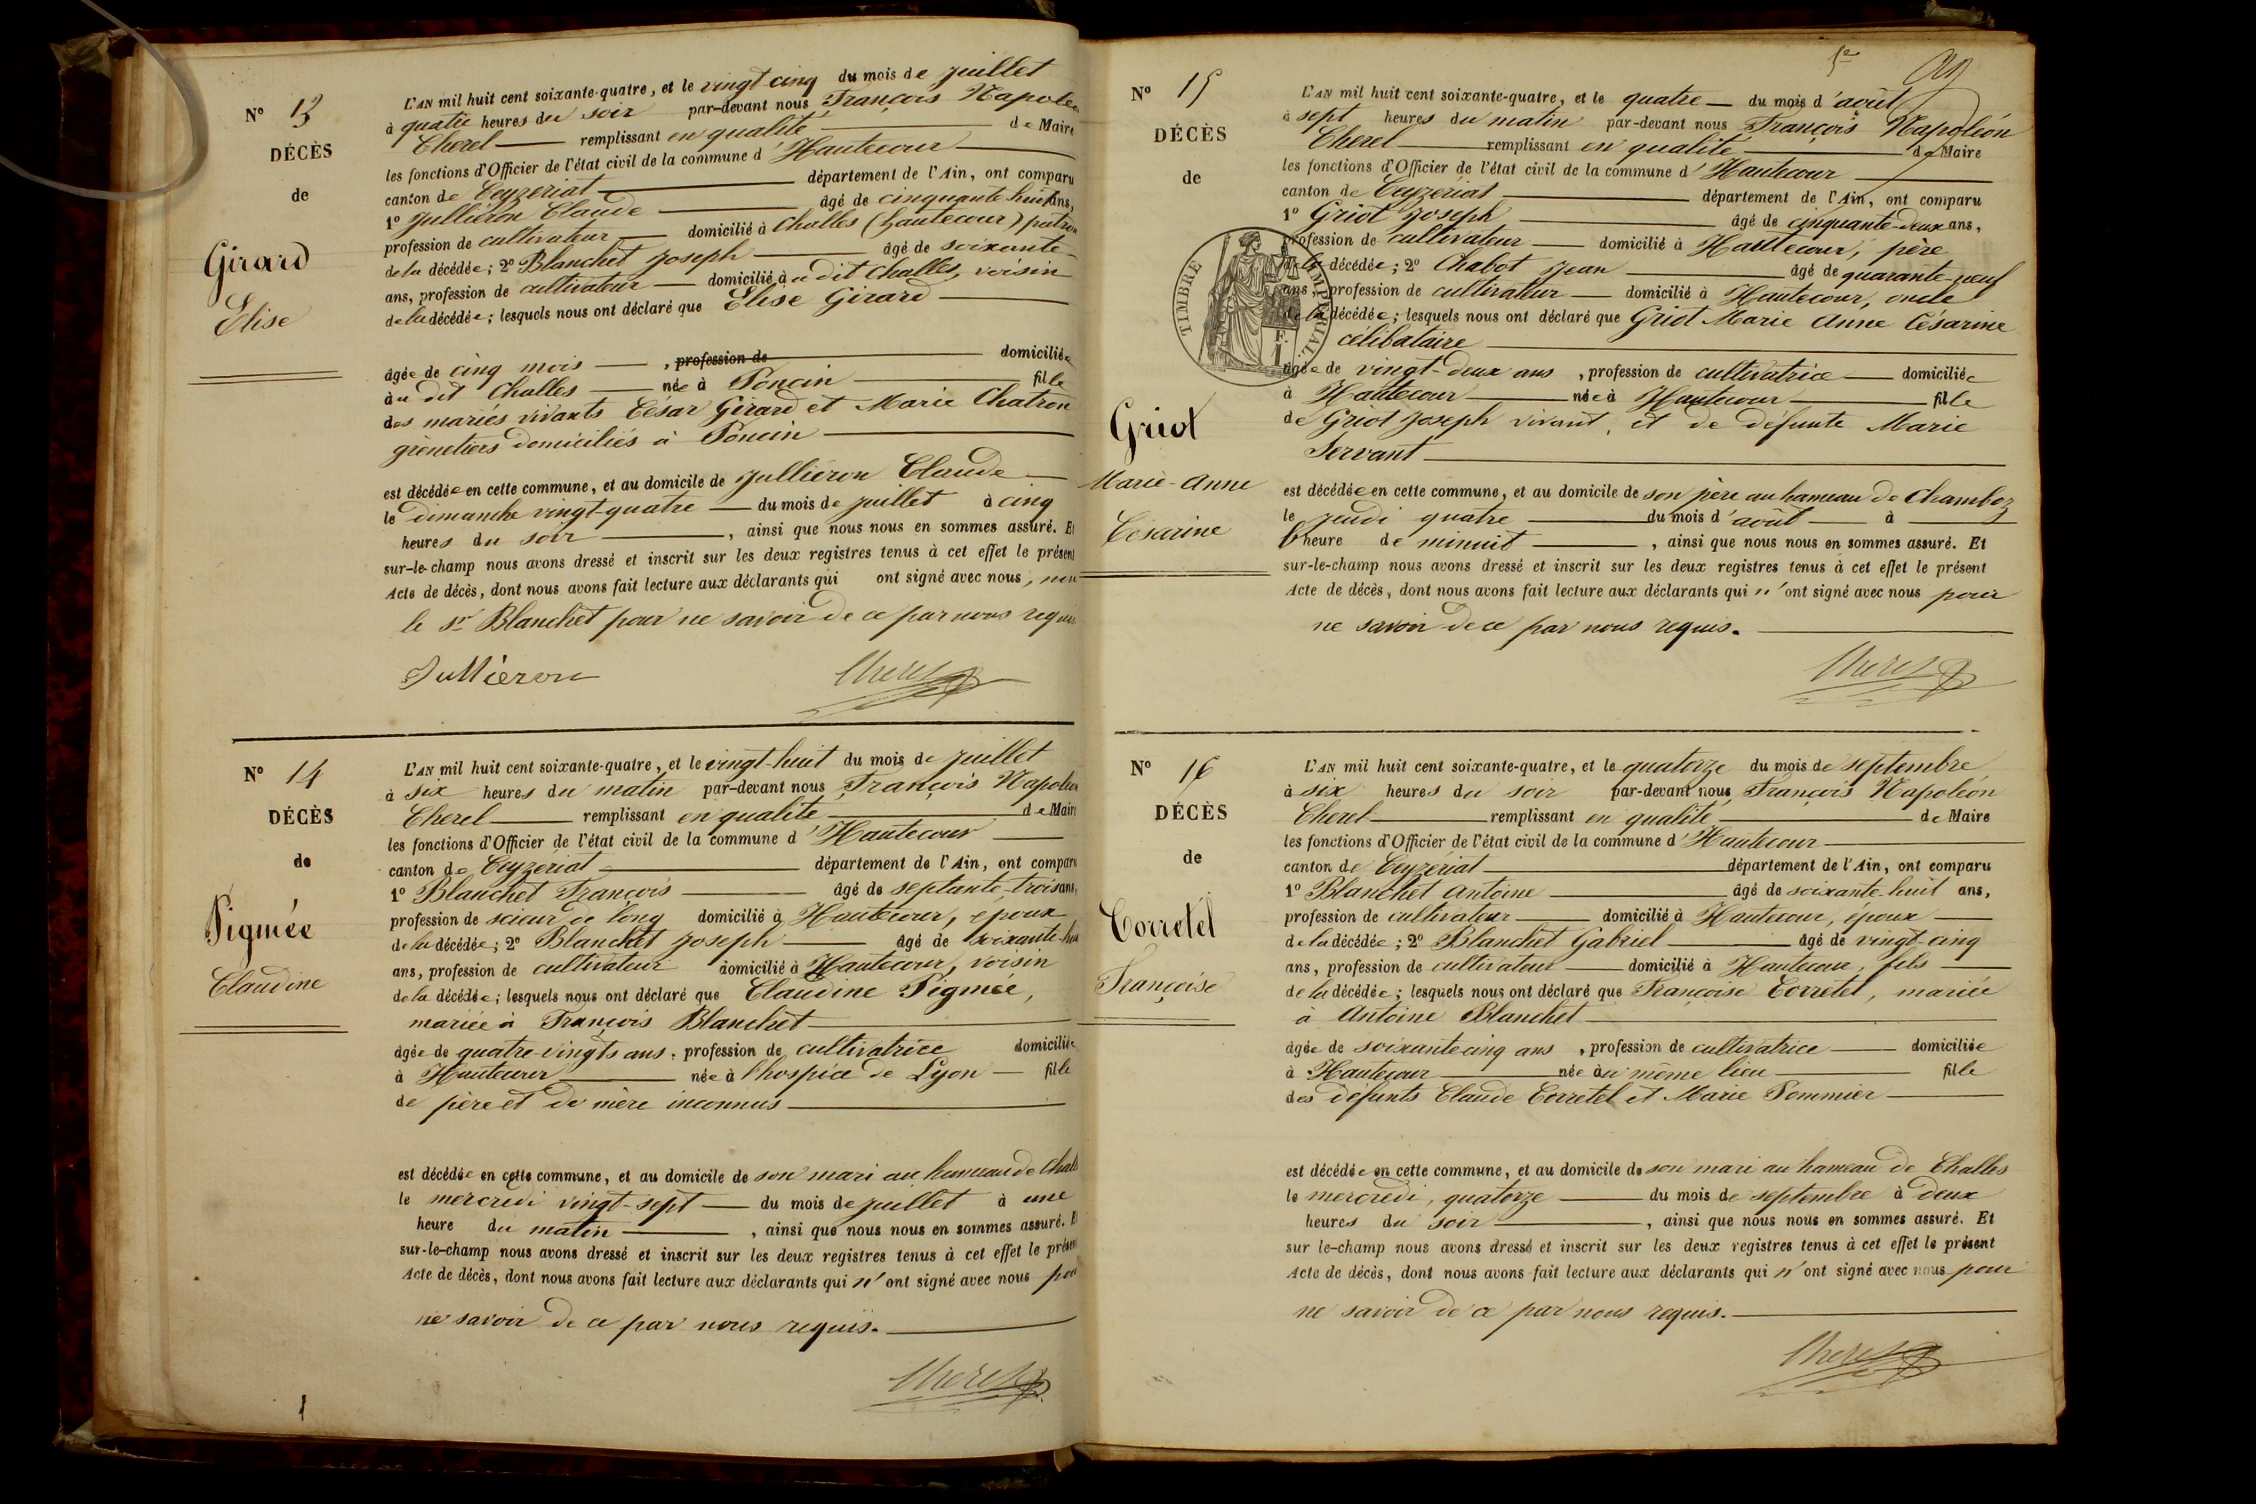 Nº 13
DÉCÈS
de
Girard
Elise
L'AN mil huit cent soixante-quatre, et le vingt cinq du mois de juillet
à quatre heures du soir par-devant nous François Napoléo
Cherel remplissant en qualité de Maire
les fonctions d'Officier de l'état civil de la commune d'Hautecour
canton de Ceyzériat département de l'Ain, ont comparu
1º Jullieron Claude âgé de cinquante huit ans,
profession de cultivateur domicilié à Challes (hautecour) patron
de la décédée; 2º Blanchet Joseph âgé de soixante
ans, profession de cultivateur domicilié à u dit Challes, voisin
de la décédée; lesquels nous ont déclaré que Elise Girard
âgée de cinq mois, profession de domiciliée
à u dit Challes née à Poncin fille
des mariés vivants César Girard et Marie Chatron
grènetiers domiciliés à Poncin
est décédée en cette commune, et au domicile de Jullieron Claude
le dimanche vingt-quatre du mois de juillet à cinq
heures du soir, ainsi que nous nous en sommes assuré. Et
sur-le-champ nous avons dressé et inscrit sur les deux registres tenus à cet effet le présent
Acte de décès, dont nous avons fait lecture aux déclarants qui ont signé avec nous, non
le Sr Blanchet pour ne savoir de ce par nous requis
Jullieron Cherel
Nº 14
DÉCÈS
de
Pigmée
Claudine
L'AN mil huit cent soixante-quatre, et le vingt-huit du mois de juillet
à six heures du matin par-devant nous François Napoléon
Cherel remplissant en qualité de Maire
les fonctions d'Officier de l'état civil de la commune d'Hautecour
canton de Ceyzériat département de l'Ain, ont comparu
1º Blanchet François âgé de septante-trois ans,
profession de scieur de long domicilié à Hautecour, époux
de la décédée; 2º Blanchet Joseph âgé de soixante-huit
ans, profession de cultivateur domicilié à Hautecour, voisin
de la décédée; lesquels nous ont déclaré que Claudine Pigmée,
mariée à François Blanchet
âgée de quatre-vingts ans, profession de cultivatrice domiciliée
à Hautecour née à l'hospice de Lyon fille
de père et de mère inconnus
est décédée en cette commune, et au domicile de son mari au hameau de Chall
le mercredi vingt-sept du mois de juillet à une
heure du matin, ainsi que nous nous en sommes assuré. Et
sur-le-champ nous avons dressé et inscrit sur les deux registres tenus à cet effet le présent
Acte de décès, dont nous avons fait lecture aux déclarants qui n'ont signé avec nous pour
ne savoir de ce par nous requis.
Cherel
Nº 15
DÉCÈS
de
Griot
Marie-Anne
Césarine
TIMBRE IMPÉRIAL
L'AN mil huit cent soixante-quatre, et le quatre du mois d'août
à sept heures du matin par-devant nous François Napoléon
Cherel remplissant en qualité de Maire
les fonctions d'Officier de l'état civil de la commune d'Hautecour
canton de Ceyzériat département de l'Ain, ont comparu
1º Griot Joseph âgé de cinquante-deux ans,
profession de cultivateur domicilié à Hautecour, père
de la décédée; 2º Chabot Jean âgé de quarante-neuf
ans, profession de cultivateur domicilié à Hautecour, oncle
de la décédée; lesquels nous ont déclaré que Griot Marie Anne Césarine
célibataire
âgée de vingt-deux ans, profession de cultivatrice domiciliée
à Hautecour née à Hautecour fille
de Griot Joseph vivant, et de défunte Marie
Servant
est décédée en cette commune, et au domicile de son père au hameau de Chamboz
le jeudi quatre du mois d'août à
l'heure de minuit, ainsi que nous nous en sommes assuré. Et
sur-le-champ nous avons dressé et inscrit sur les deux registres tenus à cet effet le présent
Acte de décès, dont nous avons fait lecture aux déclarants qui n'ont signé avec nous pour
ne savoir de ce par nous requis.
Cherel
Nº 16
DÉCÈS
de
Corretel
Françoise
L'AN mil huit cent soixante-quatre, et le quatorze du mois de septembre
à six heures du soir par-devant nous François Napoléon
Cherel remplissant en qualité de Maire
les fonctions d'Officier de l'état civil de la commune d'Hautecour
canton de Ceyzériat département de l'Ain, ont comparu
1º Blanchet Antoine âgé de soixante-huit ans,
profession de cultivateur domicilié à Hautecour, époux
de la décédée; 2º Blanchet Gabriel âgé de vingt-cinq
ans, profession de cultivateur domicilié à Hautecour, fils
de la décédée; lesquels nous ont déclaré que Françoise Corretel, mariée
à Antoine Blanchet
âgée de soixante cinq ans, profession de cultivatrice domiciliée
à Hautecour née au même lieu fille
des défunts Claude Corretel et Marie Pommier
est décédée en cette commune, et au domicile de son mari au hameau de Challes
le mercredi, quatorze du mois de septembre à deux
heures du soir, ainsi que nous nous en sommes assuré. Et
sur le-champ nous avons dressé et inscrit sur les deux registres tenus à cet effet le présent
Acte de décès, dont nous avons fait lecture aux déclarants qui n'ont signé avec nous pour
ne savoir de ce par nous requis.
Cherel